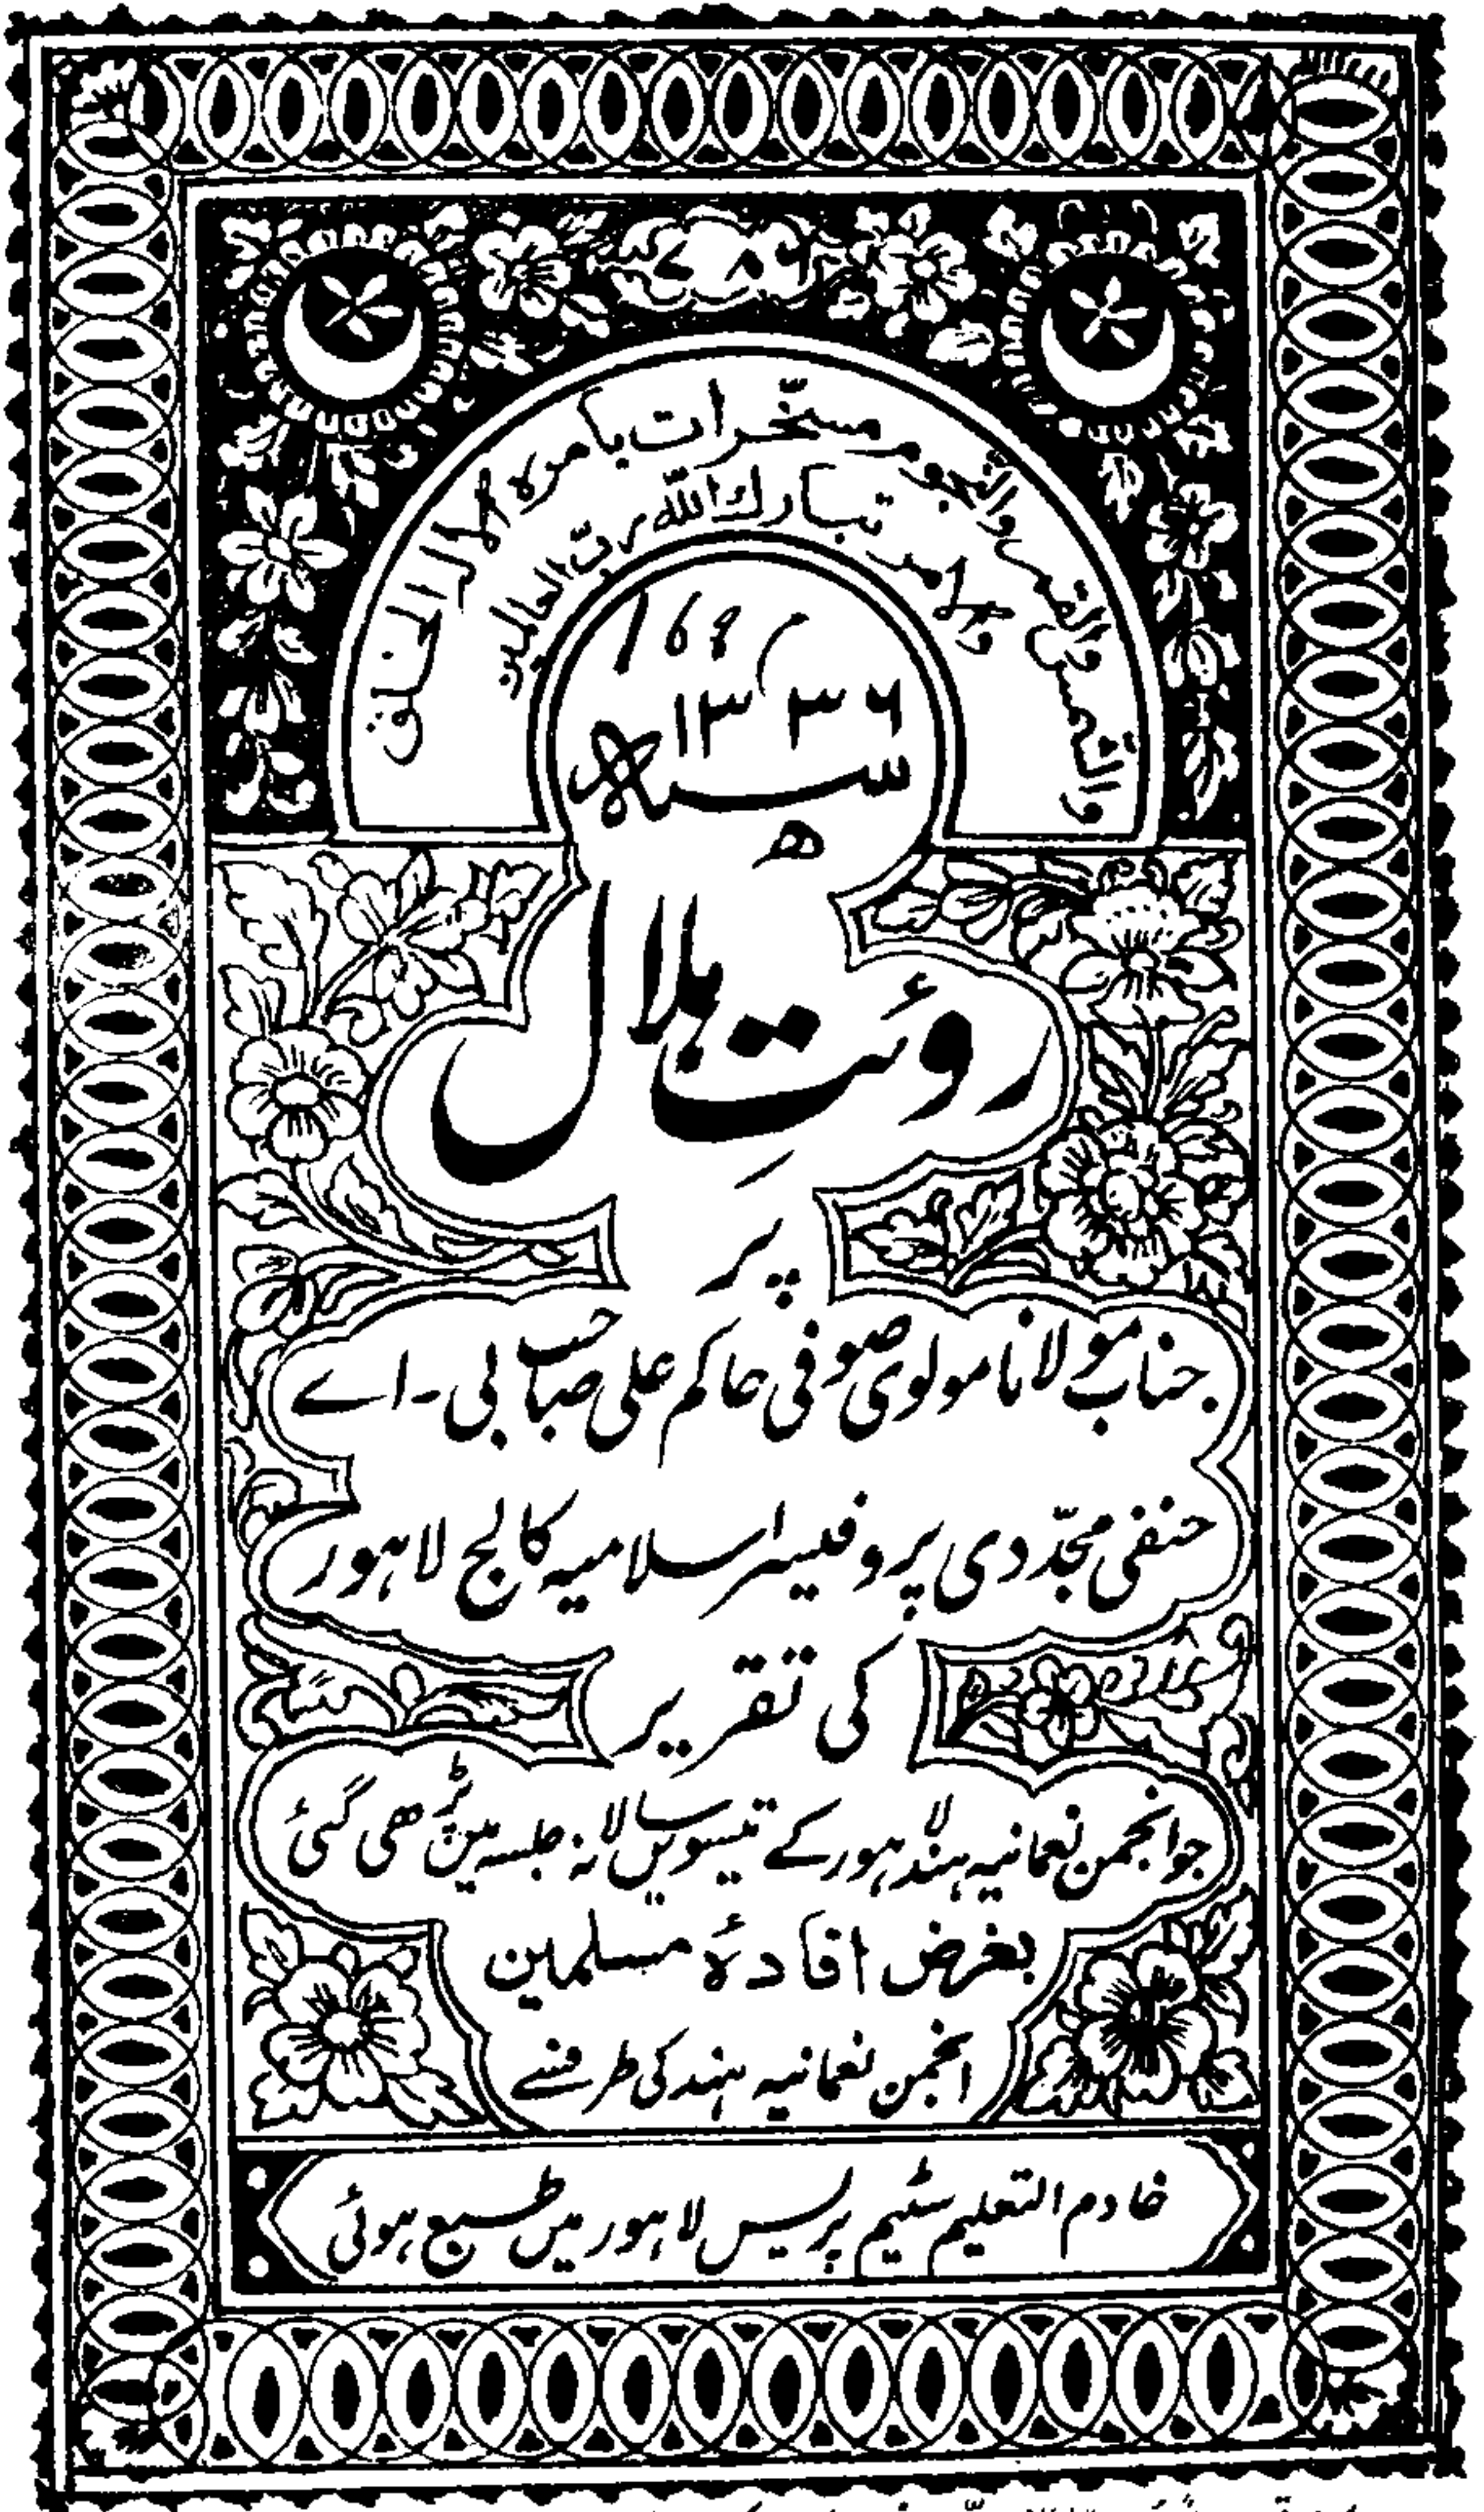 ۷۸۶
والشمس والقمر والنجوم مسخّرات بامره الا له الخلق
والامر تبارك الله رب العالمین
۱۳۳۶
سنہ
ھ
روئت ہلال
پر
جناب مولانا مولوی صوفی حاکم علی صاحب بی ۔ اے
حنفی مجدّدی پروفیسر اسلامیہ کالج لاہور
کی تقریر
جو انجمن نعمانیہ ہند لاہور کے تیسویں سالانہ جلسہ میں پڑھی گئی
بغرض افادۂ مسلمین
انجمن نعمانیہ ہند کی طرف سے
خادم التعلیم سٹیم پریس لاہور میں طبع ہوئی